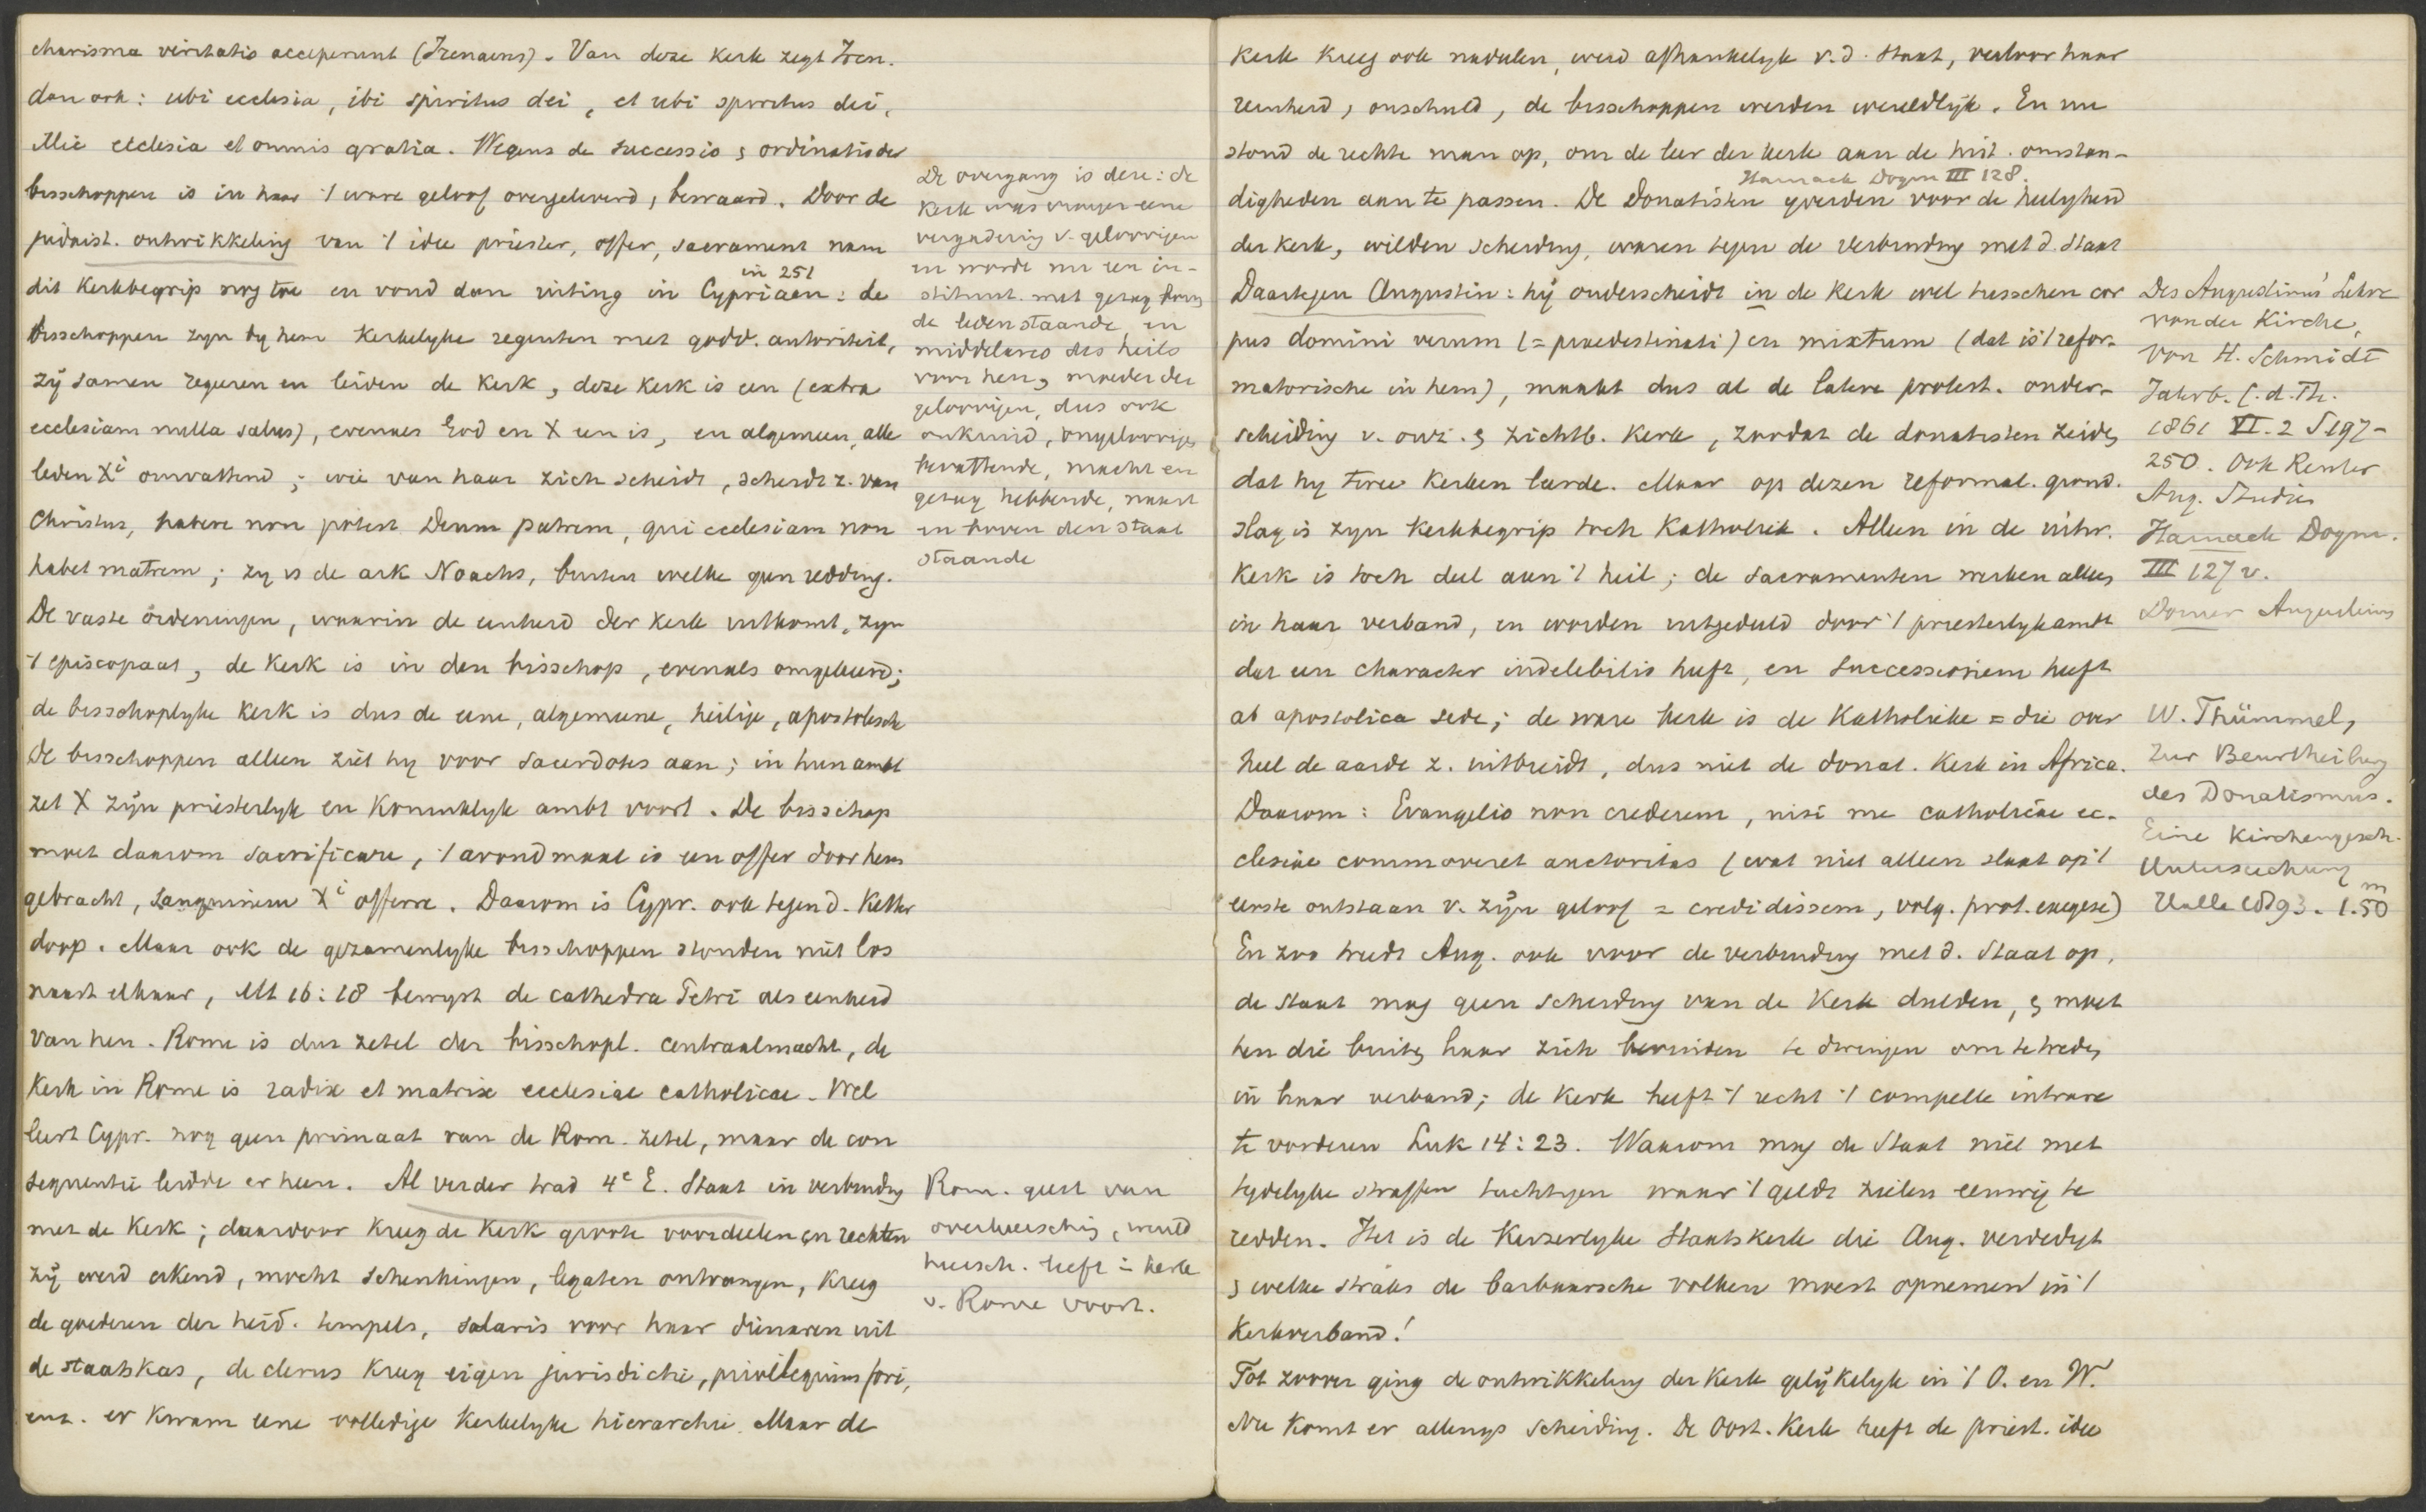 charisma veritatis acceperunt (Irenaeus). Van deze kerk zegt Iren.
dan ook: ubi ecclesia, ibi spiritus dei, et ubi spiritus dei,
illic ecclesia et omnis gratia. Wegens de successio & ordinatio der
bisschoppen is in haar 't ware geloof overgeleverd, bewaard. Door de
judaist. ontwikkeling van 't idee priester, offer, sacrament nam
in 251
dit Kerkbegrip nog toe en vond dan uiting in Cypriaan: de
bisschoppen zyn by hem Kerkelyke regenten met godd. autoriteit,
zÿ samen regeeren en leiden de Kerk, deze Kerk is een (extra
ecclesiam nulla salus), evenals God en X een is, en algemeen, alle
leden Xi omvattend; wie van haar zich scheidt, scheidt z. van
Christus, habere non potest Deum patrem, qui ecclesiam non
habet matrem; zy is de ark Noachs, buiten welke geen redding.
De vaste ordeningen, waarin de eenheid der Kerk uitkomt, zyn
't episcopaat, de Kerk is in den bisschop, evenals omgekeerd;
de bisschoplyke Kerk is dus de eene, algemeene, heilige, apostolische
De bisschoppen alleen ziet hy voor sacerdotes aan; in hun ambt
zet X zÿn priesterlyk en Koninklyk ambt voort. De bisschop
moet daarom sacrificare, 't avondmaal is een offer door hem
gebracht, sanguinem Xi offerre. Daarom is Cypr. ook tegen d. Ketter
doop. Maar ook de gezamenlyke bisschoppen stonden niet los
naast elkaar, Mt 16:18 bewyst de cathedra Petri als eenheid
van hen. Rome is dus zetel der bisschopl. centraalmacht, de
Kerk in Rome is radix et matrix ecclesiae catholicae. Wel
leert Cypr. nog geen primaat van de Rom. zetel, maar de con
sequentie leidde er heen. Al verder trad 4e E. Staat in verbinding
met de Kerk; daardoor kreeg de Kerk groote voordeelen en rechten
zÿ werd erkend, mocht schenkingen, legaten ontvangen, kreeg
de goederen der heid. tempels, salaris voor haar dienaren uit
de staatskas, de clerus kreeg eigen jurisdictie, privilegium fori,
enz. er kwam eene volledige Kerkelyke hierarchie. Maar de
De overgang is deze: de
Kerk was vroeger eene
vergadering v. geloovigen
en wordt nu een in-
stituut met gezag boven
de leden staande, en
middelares des heils
voor hen, moeder der
geloovigen, dus ook
onkruid, ongeloovigen
bevattende, macht en
gezag hebbende, naast
en boven den staat
staande
Rom. geest van
overheersching, wereld
heersch. leeft in kerk
v. Rome voort.
Kerk kreeg ook nadeelen, werd afhankelyk v. d. Staat, verloor haar
reinheid, onschuld, de bisschoppen werden wereldlÿk. En nu
stond de rechte man op, om de leer der kerk aan de hist. omstan-
Harnack Dogm III 128.
digheden aan te passen. De Donatisten yverden voor de heilygheid
der Kerk, wilden scheiding, waren tegen de verbinding met d. Staat
Daartegen Augustin: hÿ onderscheidt in de Kerk wel tusschen cor
pus domini verum (= praedestinati) en mixtum (dat is 't refor-
matorische in hem), maakt dus al de latere protest. onder-
scheiding v. onz. & zichtb. Kerk, zoodat de donatisten zeiden
dat hy twee Kerken leerde. Maar op dezen reformat. grond-
slag is zyn Kerkbegrip toch Katholiek. Alleen in de uitw.
Kerk is toch deel aan 't heil; de sacramenten werken alleen
in haar verband, en worden uitgedeeld door 't priesterlyk ambt
dat een character indelebilis heeft, en successionem heeft
ab apostolica sede; de ware kerk is de Katholieke = die over
heel de aarde z. uitbreidt, dus niet de donat. Kerk in Africa.
Daarom: Evangelio non crederem, nisi me catholicae ec-
clesiae commoveret auctoritas (wat niet alleen slaat op 't
eerste ontstaan v. zÿn geloof = credidissem, volg. prot. exegese)
En zoo treedt Aug. ook voor de verbinding met d. Staat op,
de staat mag geen scheiding van de Kerk dulden, & moet
hen die buiten haar zich bevinden te dwingen om te treden
in haar verband; de Kerk heeft 't recht 't compelle intrare
te vorderen Luk 14:23. Waarom mag de Staat niet met
tydelyke straffen tuchtigen waar 't geldt zielen eeuwig te
redden. Het is de Keizerlyke Staatskerk die Aug. verdedigt
& welke straks de barbaarsche volken moest opnemen in 't
Kerkverband!
Tot zoover ging de ontwikkeling der Kerk gelÿkelyk in 't O. en W.
Nu komt er allengs scheiding. De Oost. Kerk heeft de priest. idee
Des Augustinus' Lehre
von der Kirche,
von H. Schmidt
Jahrb. f. d. Th.
1861 VI. 2 S 197-
250. Ook Reuter
Aug. Studien
Harnack Dogm.
III 127 v.
Dorner Augustinus
W. Thümmel,
Zur Beurtheilung
des Donatismus.
Eine Kirchengesch.
Untersuchung
Halle 1893. 1.50 m